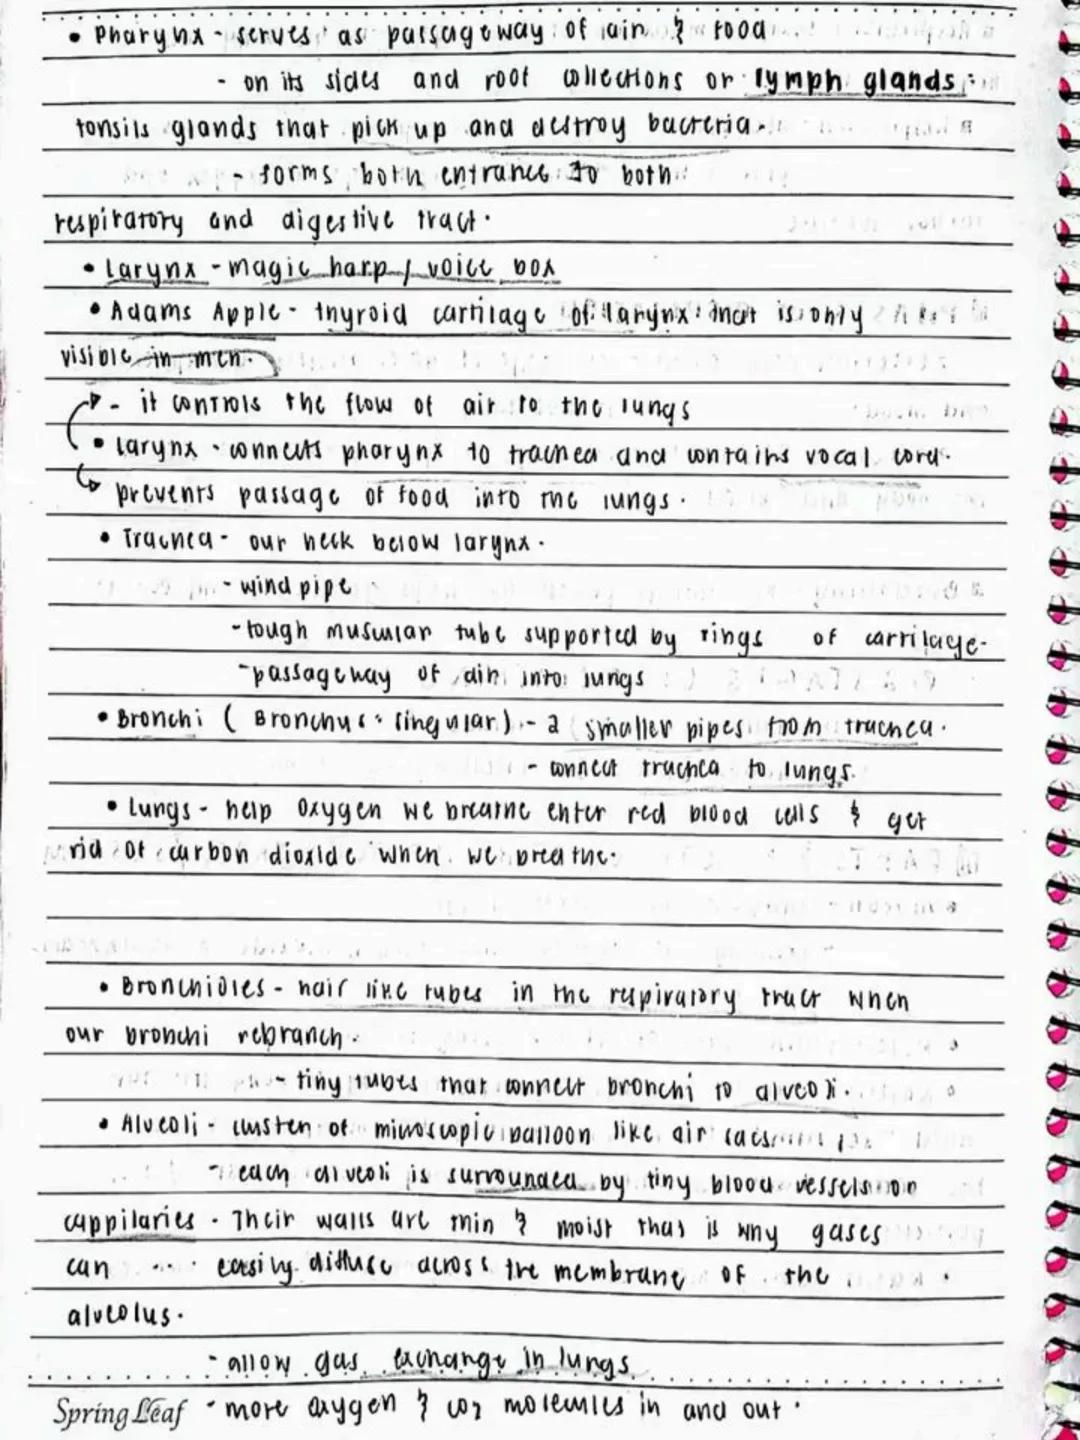 • Pharynx - serves as passageway of air & food
- on its sides and roof collections or lymph glands:
tonsils glands that pick up and destroy bacteria.
- forms both entrance to both
respiratory and digestive tract.
• Larynx - magic harp / voice box
• Adams Apple - thyroid cartilage of larynx that is only
visible in men.
- it controls the flow of air to the lungs
• larynx - connects pharynx to trachea and contains vocal cord.
prevents passage of food into the lungs.
• Trachea - our neck below larynx.
- wind pipe
- tough muscular tube supported by rings of cartilage-
- passageway of air into lungs
• Bronchi (Bronchus: singular) - 2 smaller pipes from trachea.
- connect trachea to lungs.
• Lungs - help oxygen we breathe enter red blood cells & get
rid of carbon dioxide when we breathe.
• Bronchioles - hair like tubes in the respiratory tract when
our bronchi rebranch.
- tiny tubes that connect bronchi to alveoli.
• Alveoli - cluster of microscopic balloon like air sacs
- each alveoli is surrounded by tiny blood vessels or
cappilaries. Their walls are thin & moist that is why gases
can easily diffuse across the membrane of the
alveolus.
- allow gas exchange in lungs
Spring Leaf - more oxygen & co2 molecules in and out.